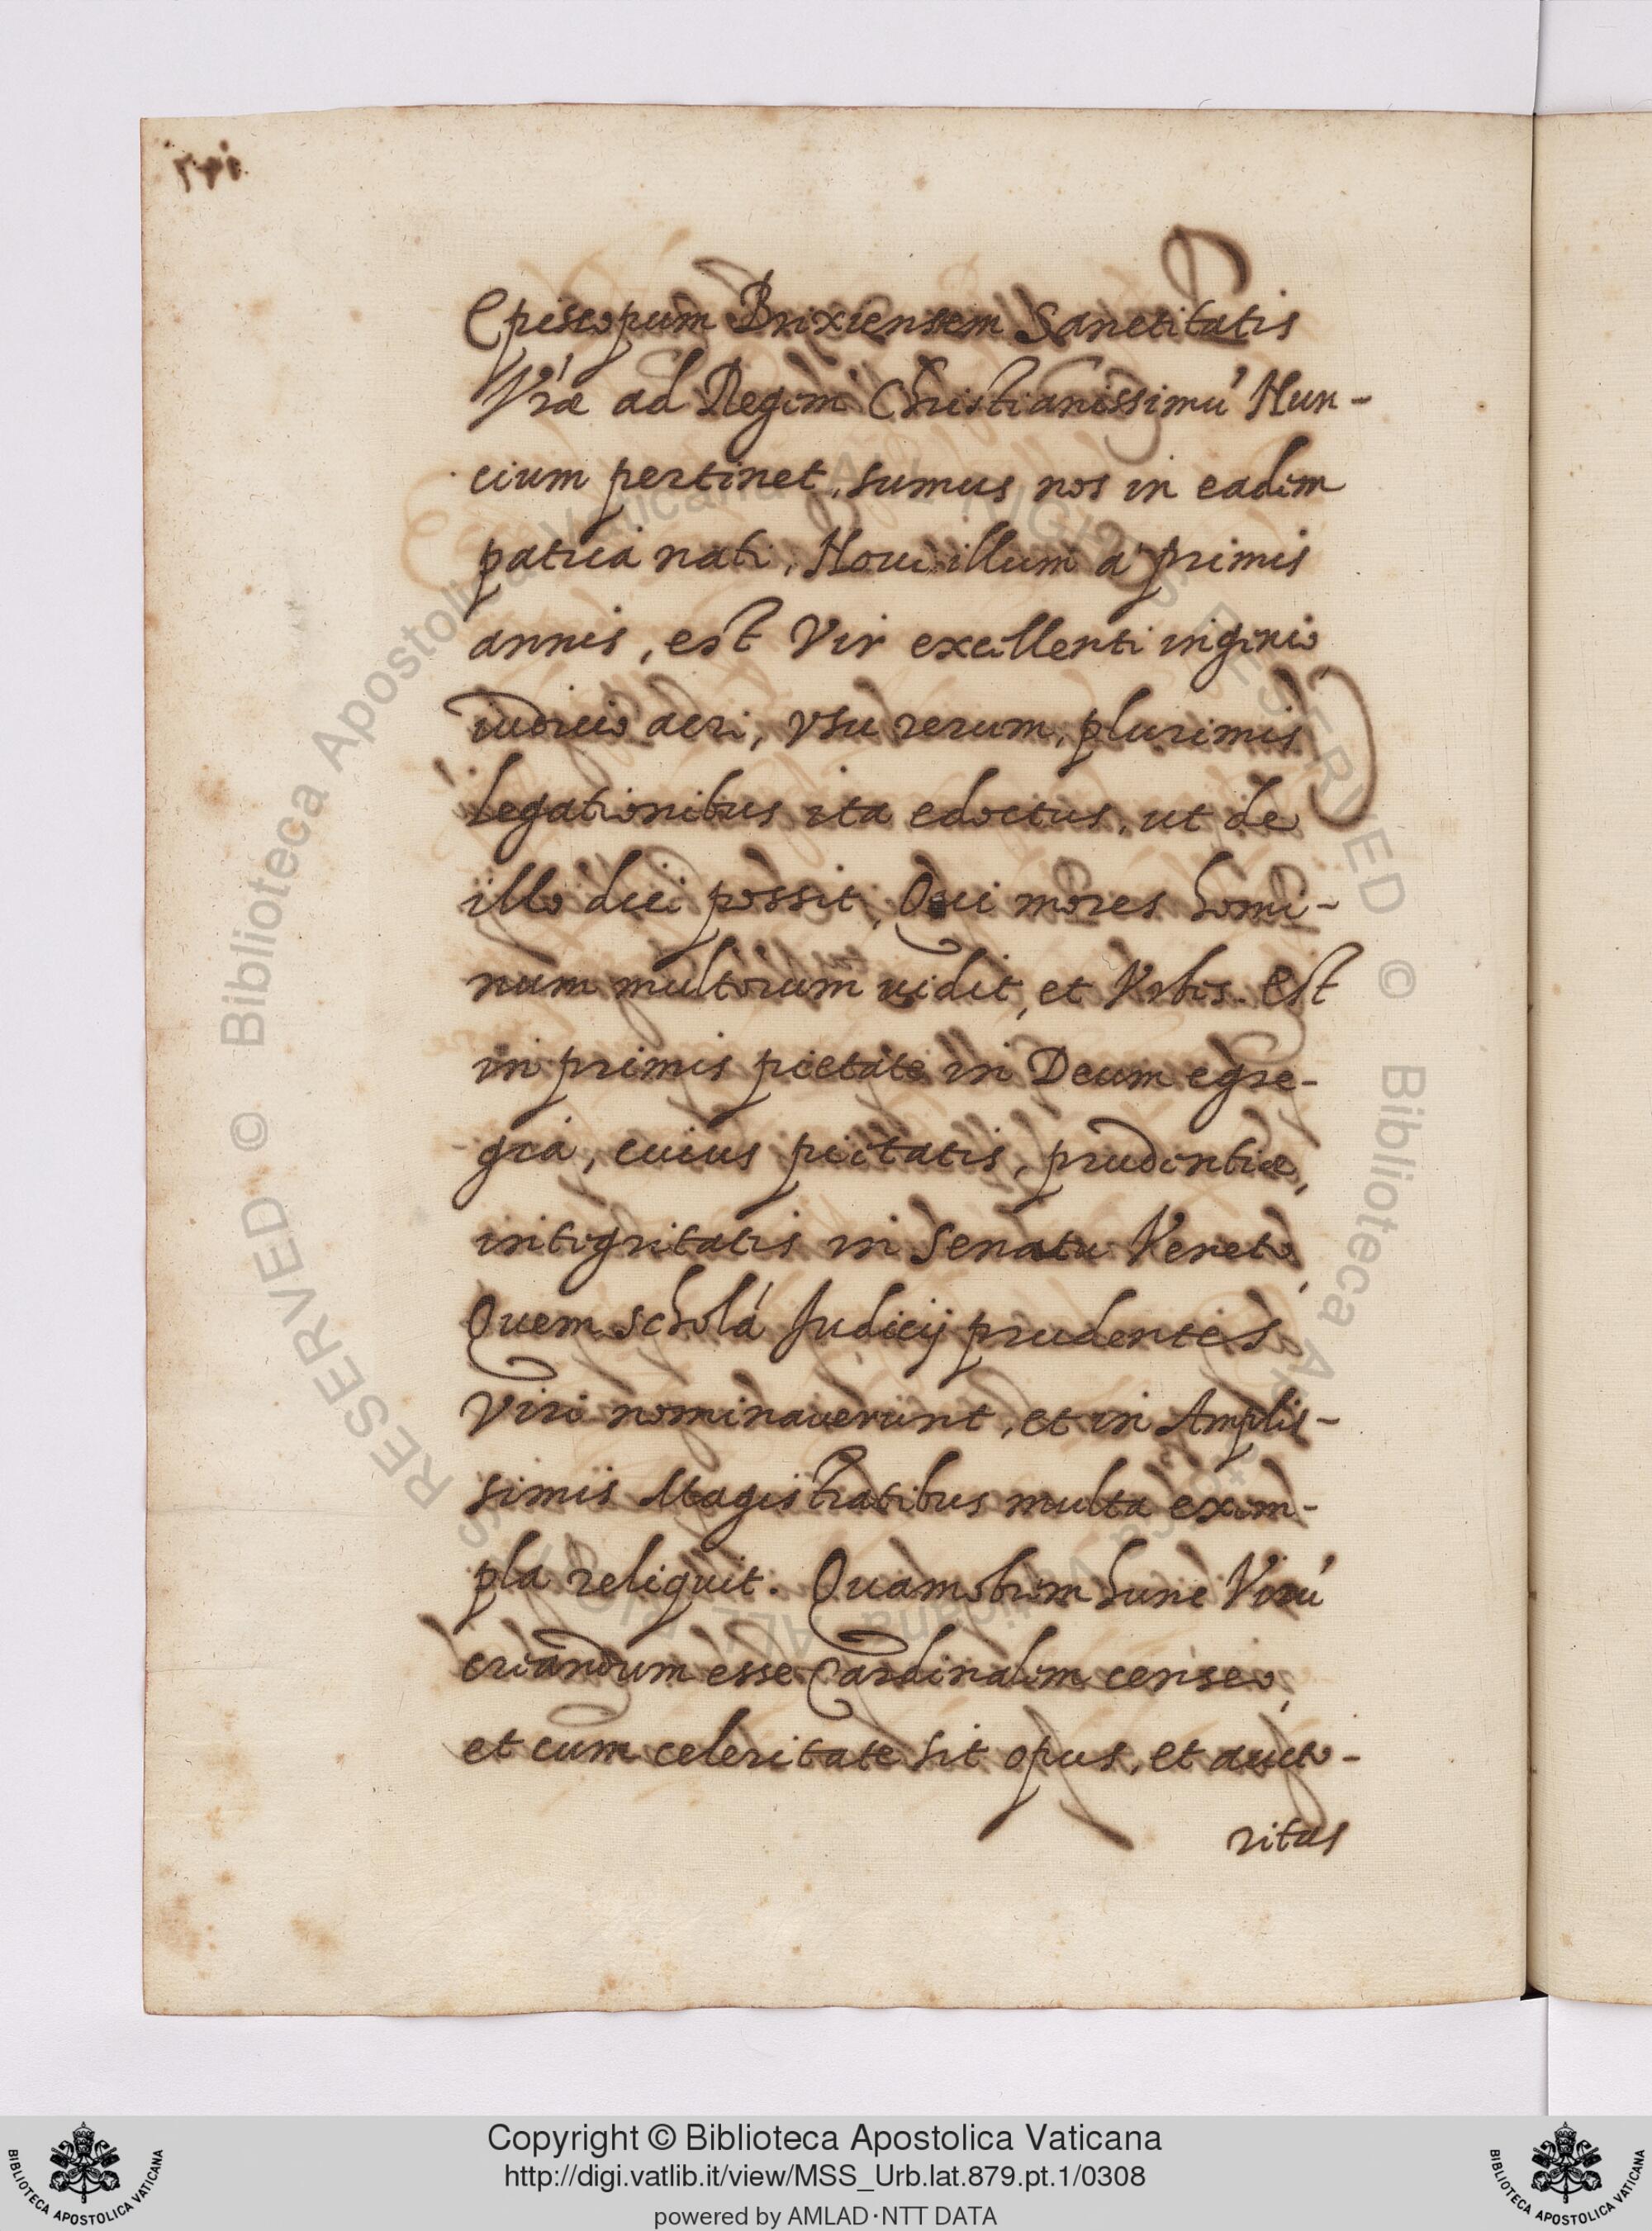 Episcopum Brixiensem Sanctitatis
Vrae ad Regem Christianissimu' Nun-
cium pertinet, sumus nos in eadem
patria nati, Noui illum a' primis
annis, est Vir excellenti ingenio,
iudicio acri, vsu rerum, plurimis
legationibus ita edoctus, ut de
illo dici possit, Qui mores homi-
num multorum uidit, et Vrbes. Est
in primis pietate in Deum egre-
gia, cuius pietatis, prudentiæ,
integritatis in Senatu Veneto,
Quem scholá Judicij prudentes
Viri nominauerunt, et in Amplis-
simis Magistratibus multa exem-
pla reliquit. Quamobrem hunc Virú
creandum esse Cardinalem censeo,
et cum celeritate sit opus, et aucto-
ritas
Copyright © Biblioteca Apostolica Vaticana
http://digi.vatlib.it/view/MSS_Urb.lat.879.pt.1/0308
powered by AMLAD·NTT DATA
BIBLIOTECA APOSTOLICA VATICANA
BIBLIOTECA APOSTOLICA VATICANA